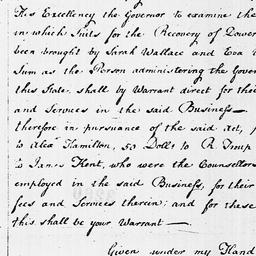 His Excellency the Governor to examine the
in which Suits for the Recovery of Dower
been brought by Sarah Wallace and
Sum as the Person administering the Gover
this State, shall by Warrant direct for thei
and Services in the said Business—
therefore in pursuance of the said Act,
to Alexr Hamilton, 50 Dolls to R Troup
to James Kent, who were the Counsellors
employed in the said Business, for their
fees and Services therein; and for these
this shall be your Warrant—
Given under my Hand